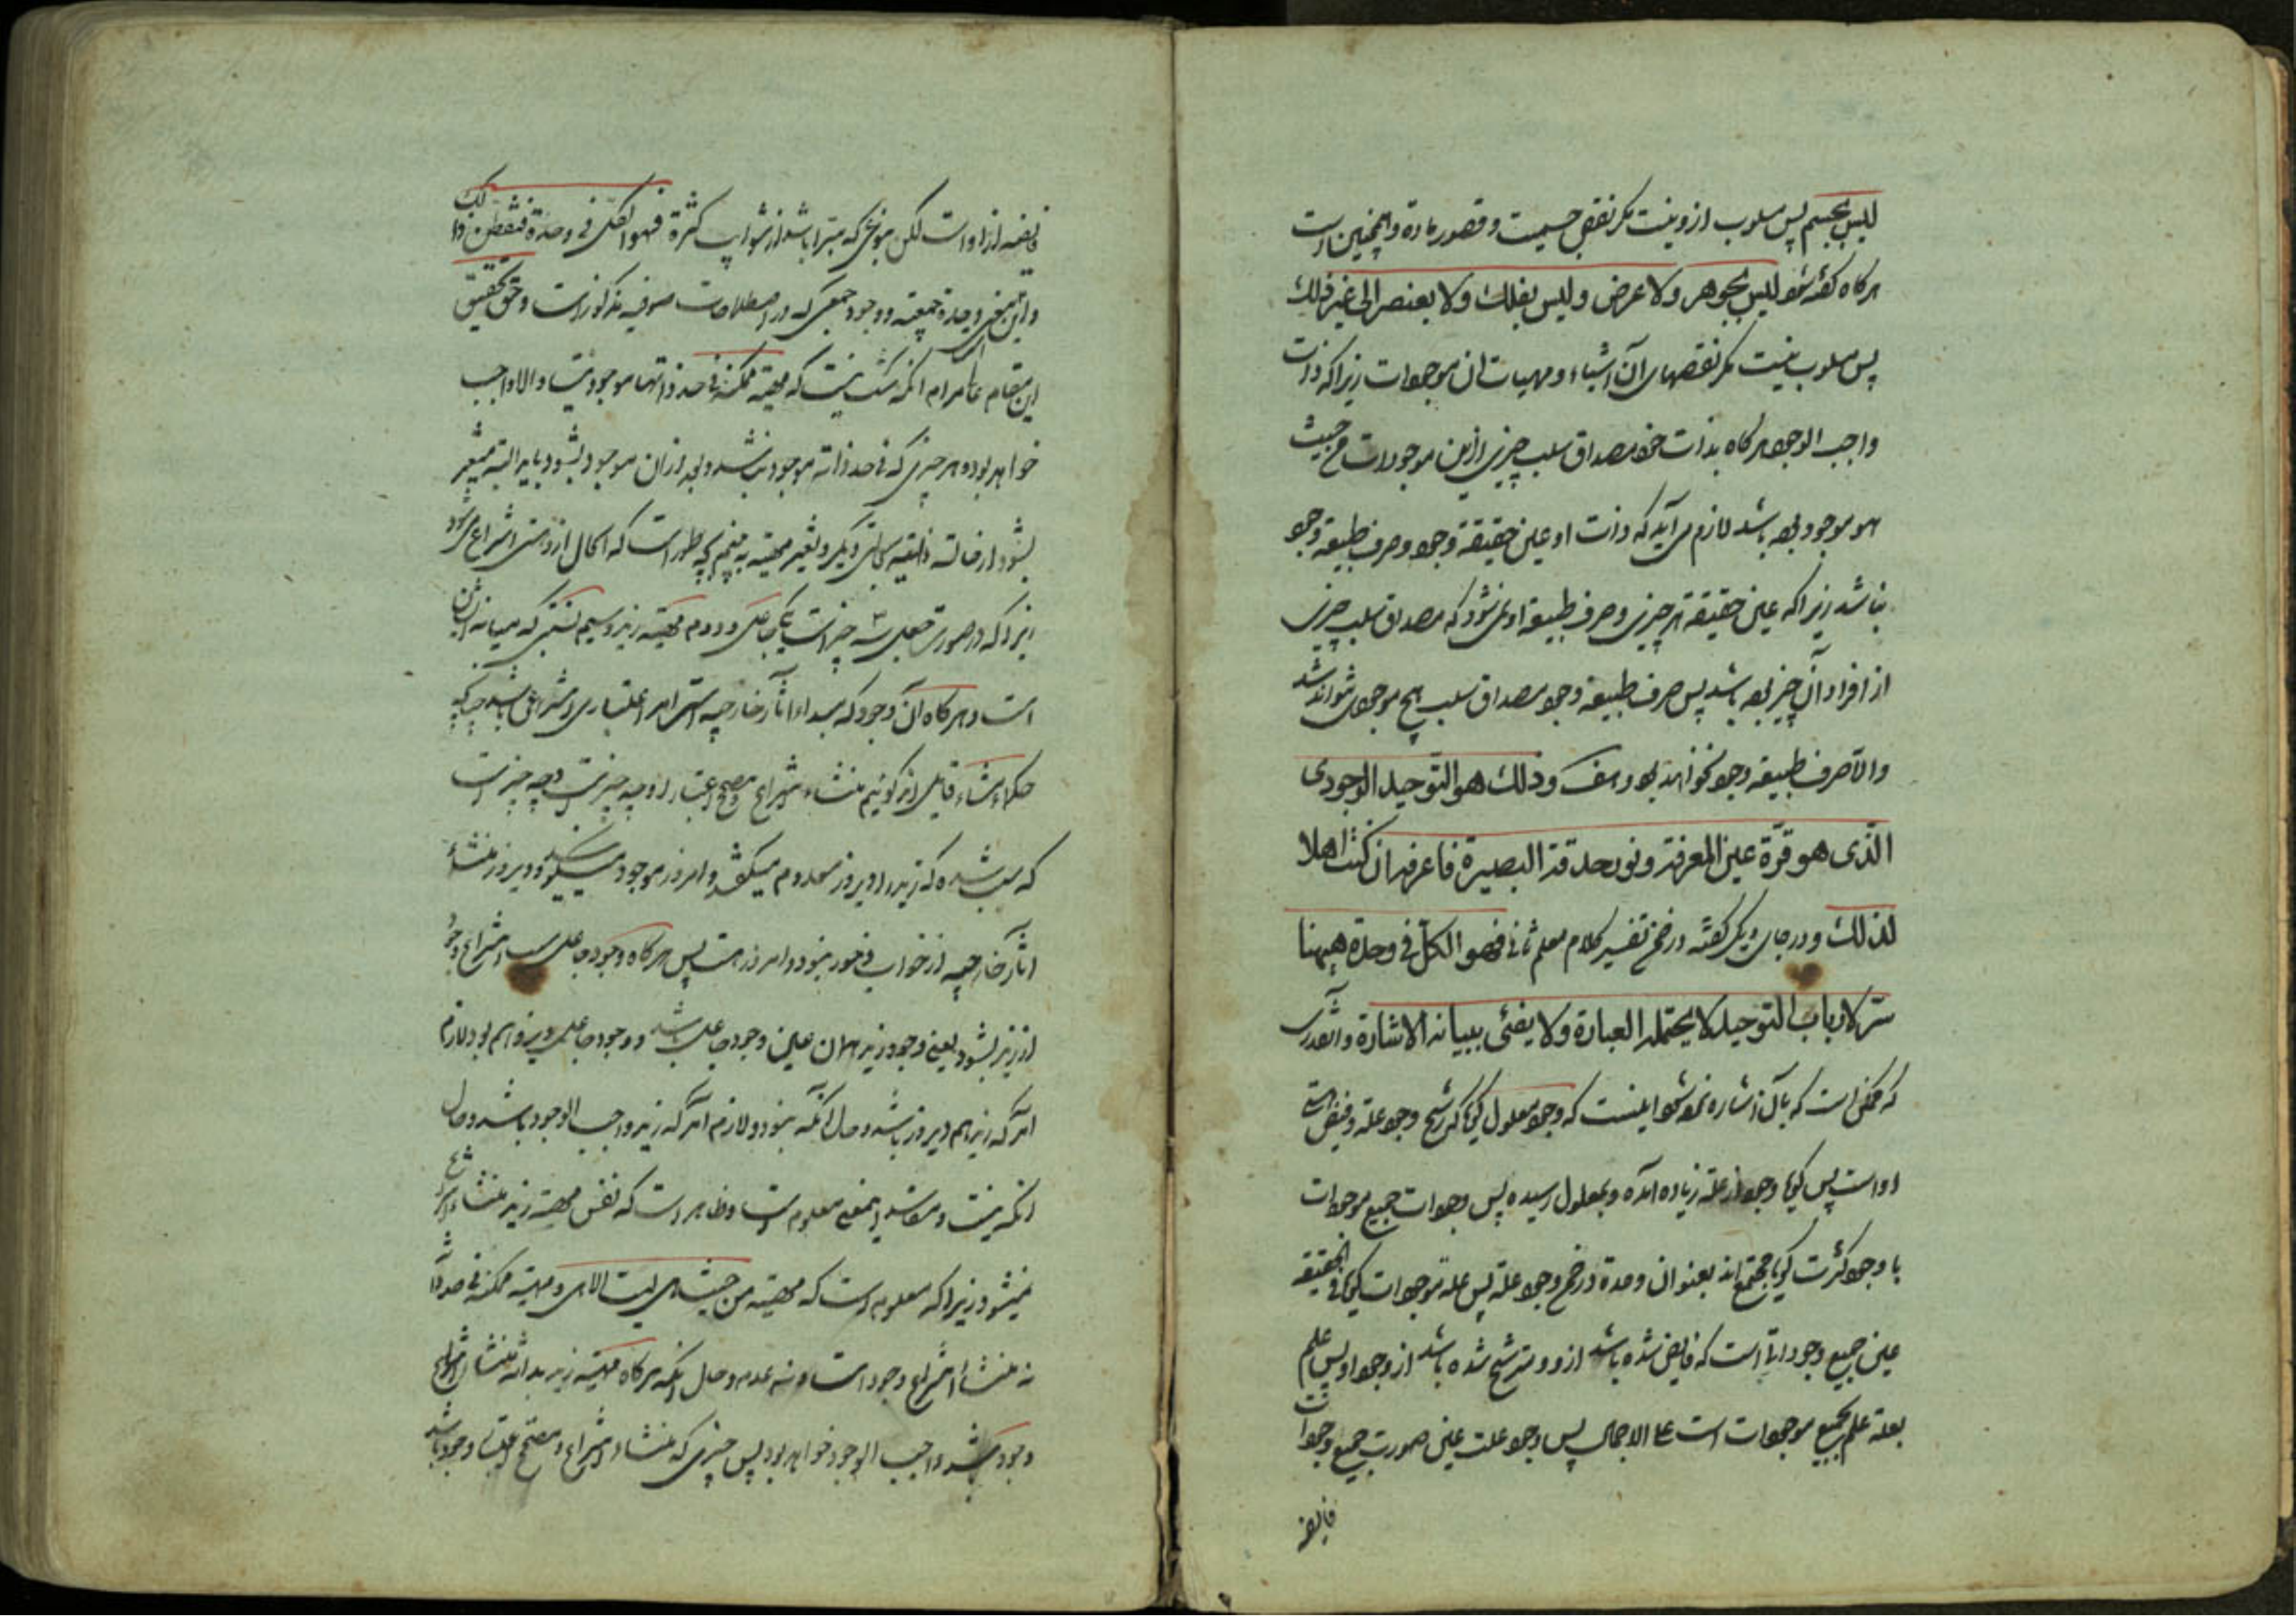 لیس بجسم پس مسلوب ازو نیست مکر نقص جسمیت و قصور ماده و همچنین است
هر کاه کفته شود لیس بجوهر ولا عرض ولیس بفلك ولا بعنصر الی غیر ذلك
پس مسلوب نیست مکر نقصهای آن اشیاء و مهیات ان موجودات زیرا که ذات
واجب الوجود هر کاه بذات خود مصداق سلب چیزی ازین موجودات من حیث
هو موجود بوده باشد لازم می آید که ذات او عین حقیقة وجود و صرف طبیعة وجود
نباشد زیرا که عین حقیقة هر چیزی و صرف طبیعة او نمی شود که مصداق سلب چیزی
از افراد آن چیز بوده باشد پس صرف طبیعة وجود مصداق سلب هیچ موجودی نتواند شد
والا صرف طبیعة وجود نخواهد بود وذلك هو التوحید الوجودی
الذی هو قرة عین المعرفة و نور حدقة البصیرة فاعرفه ان کنت اهلا
لذلك و در جای دیکر کفته در ضمن تفسیر کلام معلم ثانی فهو الکل فی وحدة ههنا
سر لارباب التوحید لا یحتمله العبارة ولا یفئی ببیانه الاشارة وانقدری
که ممکن است که بآن اشاره نموده شود اینست که وجود معلول کویا که رشح وجود علة و فیض هستی
اواست پس کویا وجود از علة زیاده آمده و بمعلول رسیده پس وجودات جمیع موجودات
با وجود کثرت کویا مجتمع اند بعنوان وحدة در ضمن وجود علة پس علة موجودات کویا فی الحقیقة
عین جمیع وجوداتست که فایض شده باشد ازو و مترشح شده باشد از وجود او پس علم
بعلة علم بجمیع موجودات است علی الاجمال پس وجود علت عین صورت جمیع وجودات
فایضه
فایضه از اواست لکن بنحوی که مبرا باشد از شوایب کثرة فهو الکل فی وحدة فتفطن ذلك
و این معنی وحدة جمعیه و وجود جمعی که در اصطلاحات صوفیه مذکور است و حق تحقیق
این مقام آنکه شك نیست که مهیة ممکنة فی حد ذاتها موجود نیست والا واجب
خواهد بود و هر چیزی که فی حد ذاته موجود نباشد و بعد ازان موجود بشود باید البته متغیر
بشود از حالتی بحالتی دیکر و تغیر مهیة به چه طور است که الحال ازو می شود
زیرا که در صورت جعل سه چیز است یکی جاعل و دوم مهیة زید و سیم نسبتی که میانه ایشان
است و هر کاه آن وجود که مبداء اثار خارجیه است امر اعتباری و انتزاعی باشد چنانکه
حکماء مشاء قایل اند کوئیم منشاء انتزاع و مصحح اعتبار او چه چیز است و چه چیز است
که سبب شده که زید را دیروز معدوم میکفتند و امروز موجود میکویند و دیروز منشاء
اثار خارجیه از خواب و خور نبود و امروز هست پس هر کاه وجود جاعل سبب انتزاع وجود
از زید بشود یعنی وجود زید همان عین وجود جاعل باشد و وجود جاعل دیروز هم بود لازم
آمد که زید هم دیروز باشد و حال آنکه نبود و لازم آمد که زید واجب الوجود باشد و حال
انکه نیست و مفاسد این معنی معلوم است و ظاهر است که نفس مهیة زید منشاء انتزاع
نمیشود زیرا که معلوم است که مهیة من حیث هی لیست الا هی و مهیة ممکنه فی حد ذاتها
نه منشاء انتزاع وجود است و نه عدم و حال آنکه هر کاه مهیة زید بذاته منشاء انتزاع
وجود باشد واجب الوجود خواهد بود پس چیزی که منشاء انتزاع و مصحح اعتبار وجود باشد